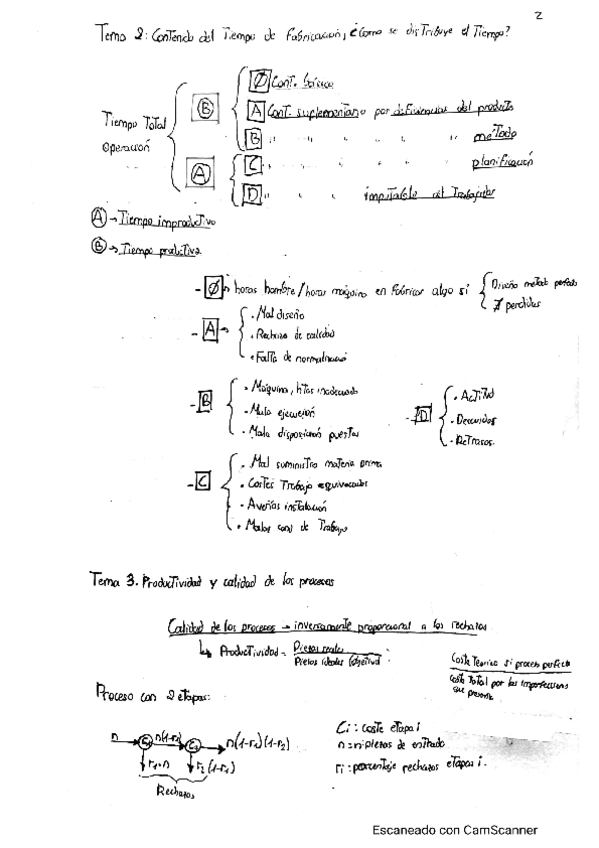 2
Tema 2: Contenido del Tiempo de Fabricación, ¿Cómo se distribuye el Tiempo?
Ø Cont. básico
B
A Cont. suplementario por deficiencias del producto
Tiempo Total
Operación
B " " " " " método
C " " " " planificación
A
D " " " imputable al Trabajador
A → Tiempo improductivo
B → Tiempo productivo
- Ø → horas hombre/horas máquina en Fabricar algo si Diseño método perfecto
∄ perdidas
- A → · Mal diseño
· Rechazo de calidad
· Falta de normalización
- B · Máquina, htas inadecuado
· Mala ejecución
· Mala disposición puestos
- D · Actitud
· Descuidos
· Retrasos.
- C · Mal suministro materia prima
· Costes Trabajo equivocados
· Averías instalación
· Malas cond de Trabajo
Tema 3. Productividad y calidad de los procesos
Calidad de los procesos → inversamente proporcional a los rechazos
↳ Productividad = Piezas reales
Piezas ideales (objetivo)
Coste Teórico si proceso perfecto
Coste Total por las imperfecciones
que presenta
Proceso con 2 etapas:
n → C1 n(1-r1) → C2 → n(1-r1)(1-r2)
r1·n r2(1-r1)
Rechazos
Ci: coste etapa i
n = nº piezas de entrada
ri: porcentaje rechazos etapa i.
Escaneado con CamScanner